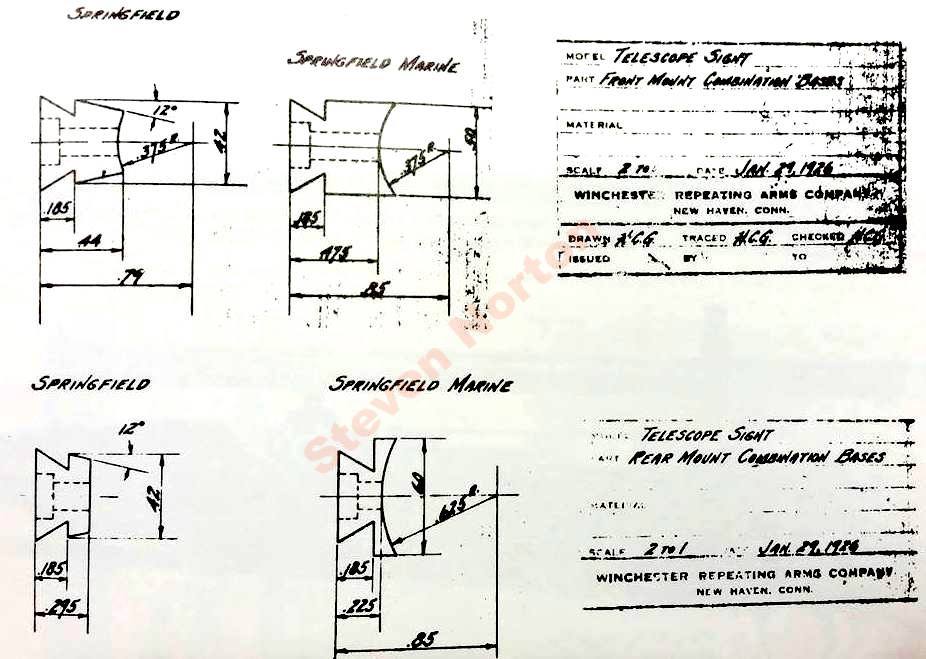 SPRINGFIELD
12°
.42
.375 R.
.185
.44
.79
SPRINGFIELD MARINE
.50
.375 R.
.185
.475
.85
MODEL TELESCOPE SIGHT
PART FRONT MOUNT COMBINATION BASES
MATERIAL
SCALE 2 TO DATE JAN. 29, 1926
WINCHESTER REPEATING ARMS COMPANY
NEW HAVEN, CONN.
DRAWN A.C.G. TRACED H.C.G. CHECKED
ISSUED BY TO
SPRINGFIELD
12°
.42
.185
.295
SPRINGFIELD MARINE
.60
.625 R.
.185
.225
.85
MODEL TELESCOPE SIGHT
PART REAR MOUNT COMBINATION BASES
MATERIAL
SCALE 2 TO 1 DATE JAN. 29, 1926
WINCHESTER REPEATING ARMS COMPANY
NEW HAVEN, CONN.
Steven Norton